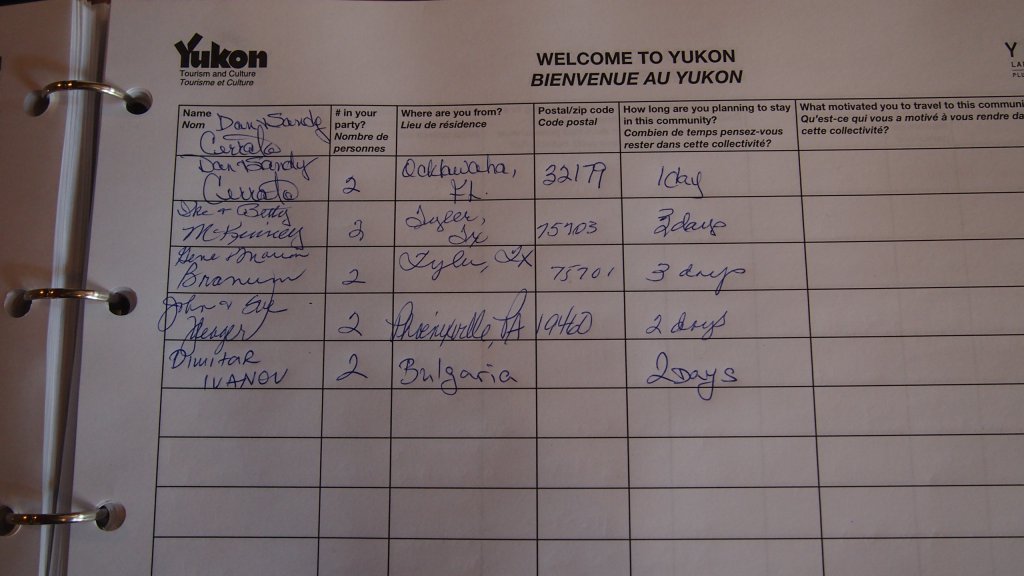 Yukon
Tourism and Culture
Tourisme et Culture
WELCOME TO YUKON
BIENVENUE AU YUKON
Y
LA
PLU
Name
Nom
Dan & Sandy
Cerrato
# in your
party?
Nombre de
personnes
Where are you from?
Lieu de résidence
Postal/zip code
Code postal
How long are you planning to stay
in this community?
Combien de temps pensez-vous
rester dans cette collectivité?
What motivated you to travel to this communi
Qu'est-ce qui vous a motivé à vous rendre da
cette collectivité?
Dan & Sandy
Cerrato
2
Ocklawaha,
FL.
32179
1 day
Ike + Betty
McKinney
2
Tyler,
Tx
75703
3 days
Gene & Marian
Branum
2
Tyler, Tx
75701
3 days
John + Eve
Yeager
2
Phoenixville, PA
19460
2 days
Dimitar
IVANOV
2
Bulgaria
2 Days